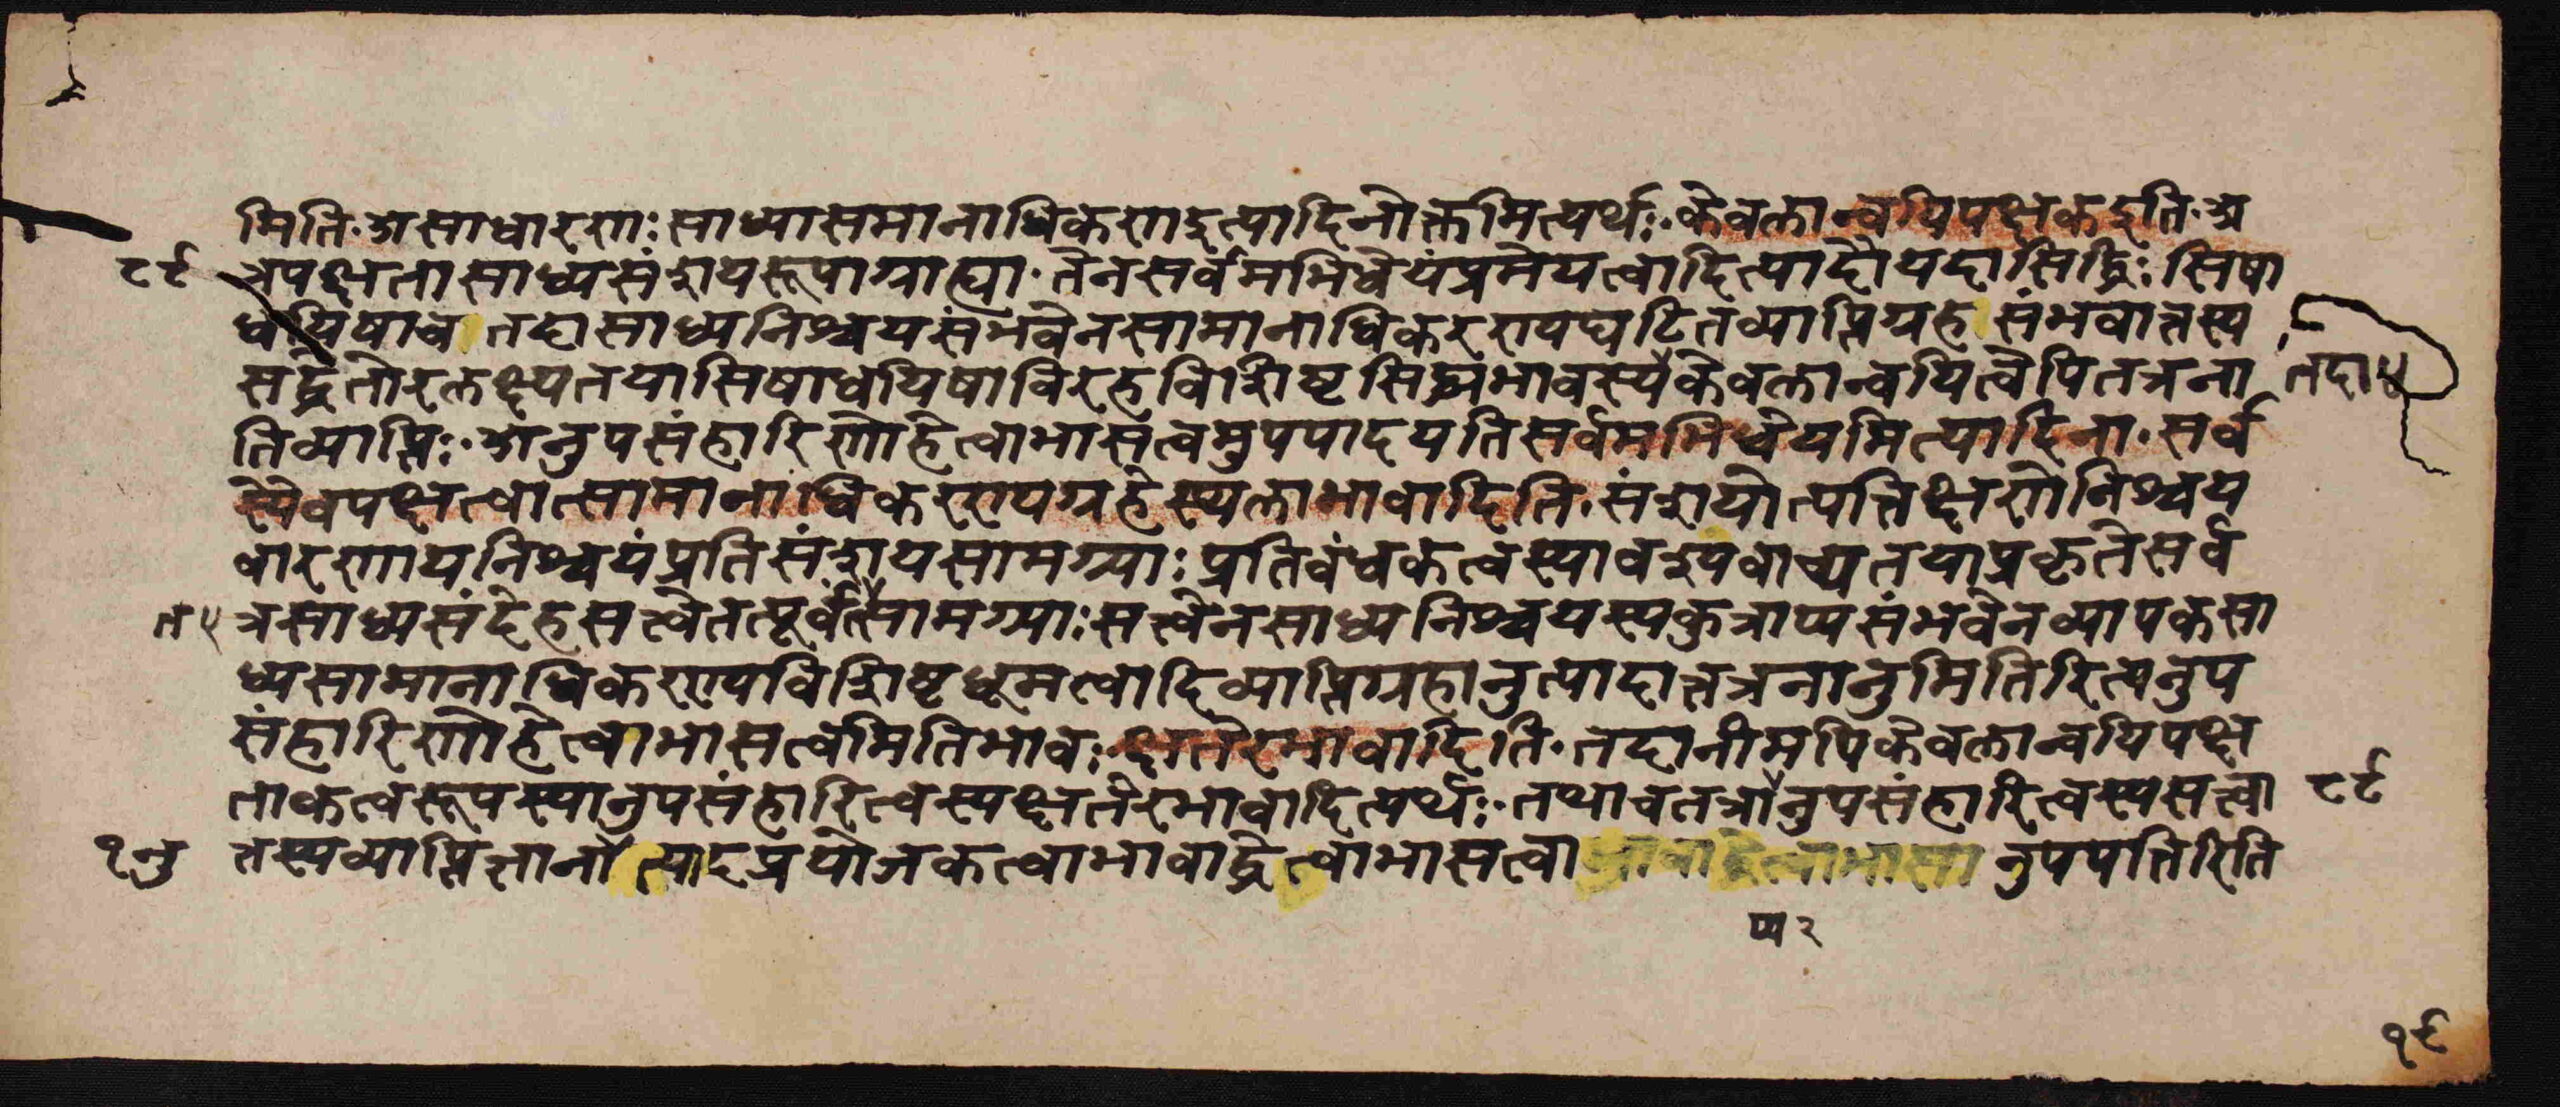 मिति.असाधारणः साध्यासमानाधिकरणइत्यादिनोक्तमित्यर्थः.केवलान्वयिपक्षकइति.अ
८९ त्रपक्षतासाध्यसंशयरूपाग्राह्या.तेनसर्वमभिधेयंप्रमेयत्वादित्यादौयदासिद्धिः सिषा
धयिषाच तदासाध्यनिश्चयसंभवेनसामानाधिकरण्यघटितव्याप्तिग्रह संभवात्तस्य
सद्धेतोरलक्ष्यतयासिषाधयिषाविरहविशिष्टसिद्ध्यभावस्यकेवलान्वयित्वेपितत्रना तदा४
तिव्याप्तिः.अनुपसंहारिणोहेत्वाभासत्वमुपपादयतिसर्वमभिधेयमित्यादिना.सर्व
स्यैवपक्षत्वात्सामानाधिकरण्यग्रहेस्थलाभावादिति.संशयोत्पत्तिक्षणेनिश्चय
वारणायनिश्चयंप्रतिसंशयसामग्र्याः प्रतिबंधकत्वंस्यावश्यवाच्यतयाप्रकृतेसर्व
त८ त्रसाध्यसंदेहसत्त्वेतत्पूर्वंसामग्र्याः सत्त्वेनसाध्यनिश्चयस्यकुत्राप्यसंभवेनव्यापकसा
ध्यसामानाधिकरण्यविशिष्टधूमत्वादिव्याप्तिग्रहानुत्पादात्तत्रनानुमितिरित्यनुप
संहारिणोहेत्वाभासत्वमितिभावः.क्षतेरभावादिति.तदानीमपिकेवलान्वयिपक्ष
ताकत्वरूपस्यानुपसंहारित्वस्यक्षतेरभावादित्यर्थः.तथाचतत्रानुपसंहारित्वस्यसत्त्वा ८९
१नु तस्यव्याप्तिज्ञानोत्पादप्रयोजकत्वाभावाद्धेत्वाभासत्वाभावाद्धेत्वाभासानुपपत्तिरिति
प्य२
१९